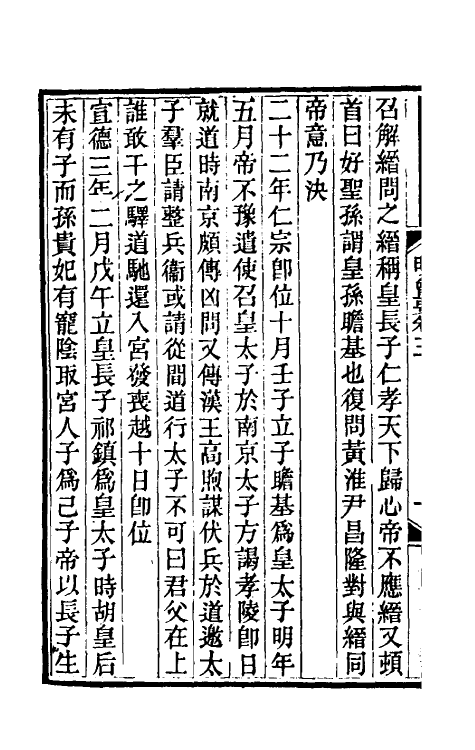 召解縉問之縉稱皇長子仁孝天下歸心帝不應縉又頓
首曰好聖孫謂皇孫瞻基也復問黃淮尹昌隆對與縉同
帝意乃決
二十二年仁宗卽位十月壬子立子瞻基爲皇太子明年
五月帝不豫遣使召皇太子於南京太子方謁孝陵卽日
就道時南京頗傳凶問又傳漢王高煦謀伏兵於道邀太
子羣臣請整兵衞或請從間道行太子不可曰君父在上
誰敢干之驛道馳還入宮發喪越十日卽位
宣德三年二月戊午立皇長子祁鎮爲皇太子時胡皇后
未有子而孫貴妃有寵陰取宮人子爲己子帝以長子生